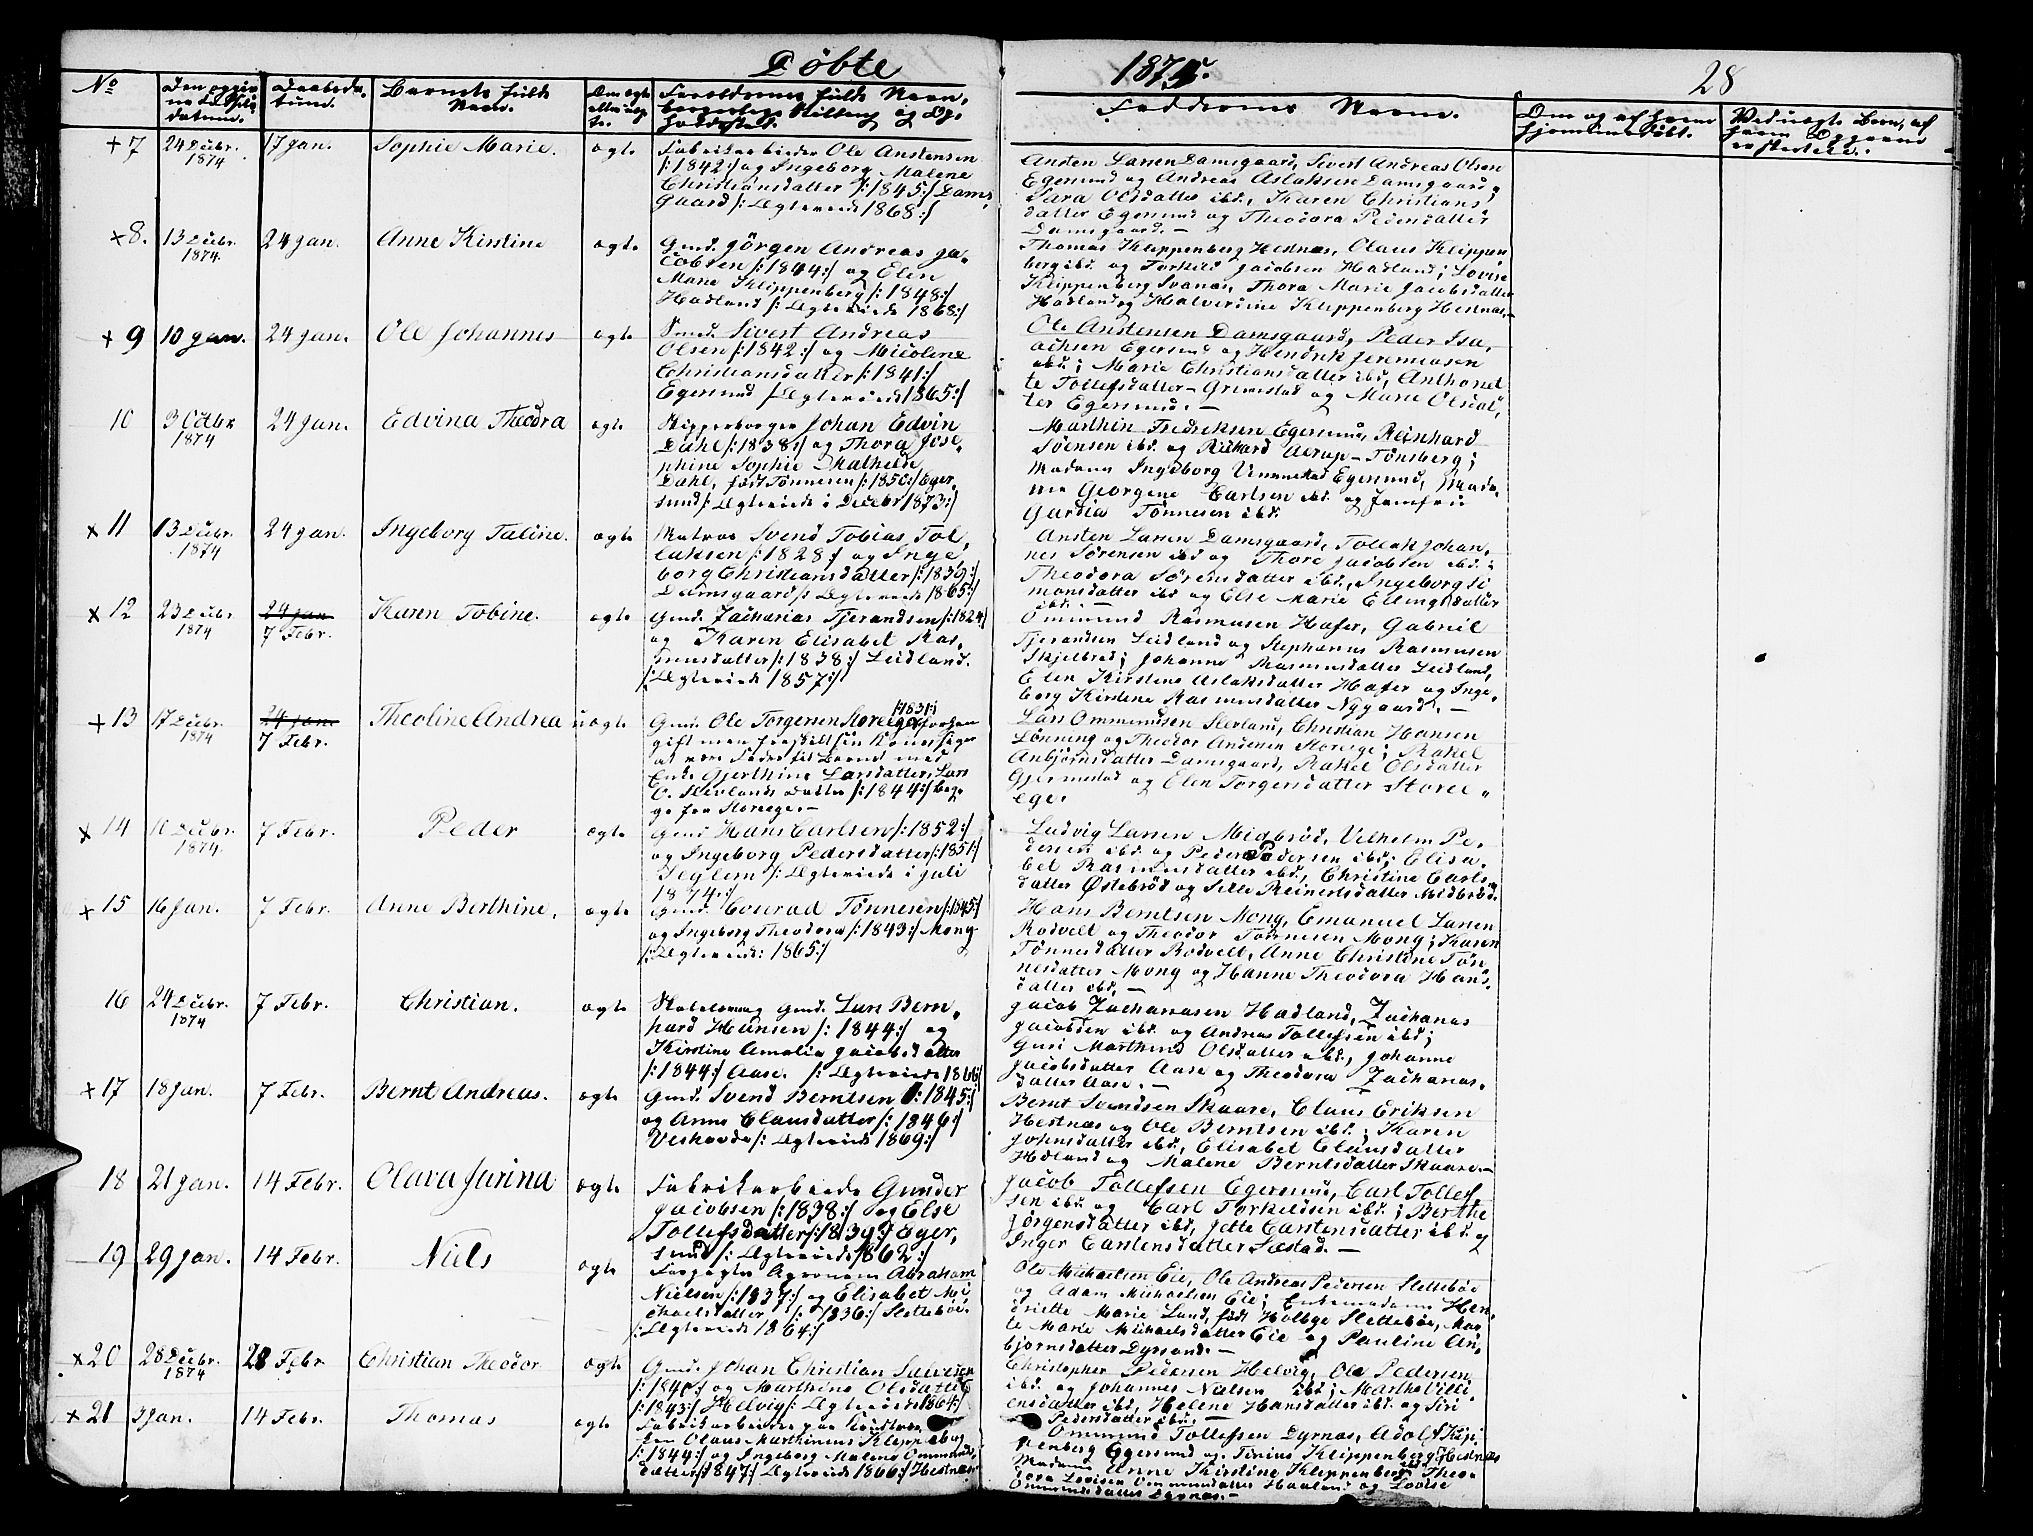 Döbte 1875. 28
No
Den opgivne Födselsdatum.
Daabsdatum.
Barnets fulde Navn.
Om ægte eller uægte.
Forældrenes fulde Navn, borgerlige Stilling og Opholdssted.
Faddernes Navne.
Om og af hvem hjemmedöbt.
Ved uægte Börn, af hvem Opgivend
+7 24 Decbr. 1874 17 Jan. Sophie Marie. ægte
Fabrikarbeider Ole Anstensen
/:1842:/ og Ingeborg Malene
Christiansdatter /:1845:/ Dams,
gaard /: Ægteviede 1868:/
Ansten Larsen Damsgaard, Sivert Andreas Olsen
Egersund og Andreas Aslaksen Damsgaard;
Sara Olsdatter ibd., Karen Christians,
datter Egersund og Theodora Pedersdatter
Damsgaard.—
+8. 13 Decbr. 1874. 24 Jan. Anne Kirstine ægte
Gmd. Jörgen Andreas Ja,
cobsen /:1844:/ og Elen
Marie Klippenberg /:1848:/
Hadland /: Ægteviede 1868:/
Thomas Klippenberg Hestnæs, Olaus Klippen
berg ibd. og Torkild Jacobsen Hadland; Lovise
Klippenberg Svanæs, Thora Marie Jacobsdatter
Hadland og Halverdine Klippenberg Hestnæs.—
+9 10 Jan. 24 Jan. Ole Johannes ægte
Smed. Sivert Andreas
Olsen /:1842:/ og Nicoline
Christiansdatter /:1841:/
Egersund /:Ægteviede 1865:/
Ole Anstensen Damsgaard, Peder Isa,
achsen Egersund og Hendrik Jeremiasen
ibd.; Marie Christiansdatter ibd., Anthonet
te Tollefsdatter Grimestad og Marie Olsdat,
ter Egersund.—
10 3 Octbr 1874 24 Jan. Edvina Theodora ægte
Skipperborger Johan Edvin
Dahl /:1838:/ og Thora Jose,
phine Sophie Mathilde
Dahl, födt Tönnesen /:1850:/ Eger,
sund /: Ægteviede i Decebr 1873:/
Marthin Fredriksen Egersund, Reinhard
Sörensen ibd. og Rickard Aarup-Tönsberg;
Madame Ingeborg Vinnestad Egersund, Mada,
me Georgene Carlsen ibd. og Jomfru
Jardia Tönnesen ibd.
x 11 13 Decbr. 1874 24 Jan. Ingeborg Taline. ægte
Matros Svend Tobias Tol,
laksen /:1828:/ og Inge,
borg Christiansdatter /:1839:/
Damsgaard /: Ægteviede 1865:/
Ansten Larsen Damsgaard, Tollak Johan,
nes Sörensen ibd og Thore Jacobsen ibd.;
Theodora Sörensdatter ibd., Ingeborg Si
monsdatter ibd og Else Marie Ellingsdatter
ibd.—
x 12 23 Decbr 1874 24 Jan 7 Febr. Karen Tobine. ægte
Gmd. Zacharias Tjerandsen /:1824:/
og Karen Elisabet Ras,
musdatter /:1838:/ Leidland.
/:Ægteviede 1857:/
Ommund Rasmusen Hafer, Gabriel
Tjerandsen Leidland og Stephanus Rasmusen
Skjelbred; Johanne Rasmusdatter Leidland,
Elen Kirstine Aslaksdatter Hafer og Inge,
borg Kirstine Rasmusdatter Nygaard.—
+13 17 Decbr. 1874 24 Jan 7 Febr. Theoline Andrea uægte
Gmd. Ole Torgersen Storeege /:1831:/
gift men fraskilt sin Kone siger
at være Fader til Barnet med
Enke Gjerthine Larsdatter, Lars
O. Sleveland datter /:1844:/ beg,
ge fra Storeege.—
Lars Ommundsen Slevland, Christian Hansen
Lönning og Theodor Andersen Storeege; Rakel
Anbjörnsdatter Damsgaard, Rakel Olsdatter
Gjermestad og Elen Torgersdatter Store,
ege.
x 14 10 Decbr. 1874. 7 Febr. Peder ægte
Gmd Hans Carlsen /:1852:/
og Ingeborg Pedersdatter /:1851:/
Seglem /: Ægteviede i Juli
1874:/
Ludvig Larsen Midbröd, Vilhelm Pe,
dersen ibd. og Peder Pedersen ibd.; Elisa,
bet Rasmusdatter ibd., Christine Carls,
datter Östebröd og Sille Reinertsdatter Midbröd.
+ 15 16 Jan. 7 Febr. Anne Berthine. ægte
Gmd. Conrad Tönnesen /:1845:/
og Ingeborg Theodora /:1843:/ Mong
/:Ægteviede: 1865:/
Hans Berntsen Mong, Emanuel Larsen
Rodvelt og Theodor Tönnesen Mong; Karen
Tönnesdatter Rodvelt, Anne Christine Tön
nesdatter Mong og Hanne Theodora Hans,
datter ibd.—
16 24 Decbr. 1874 7 Febr. Christian. ægte
Skolelærer Gmd. Lars Bern,
hard Hansen /: 1844:/ og
Kirstine Amalia Jacobsdatter
/:1844:/ Aase. /: Ægteviede 1866:/
Jacob Zachariasen Hadland, Zacharias
Jacobsen ibd. og Andreas Tollefsen ibd;
Guri Marthine Olsdatter ibd., Johanne
Jacobsdatter Aase og Theodora Zacharias,
datter Aase.—
+ 17 18 Jan. 7 Febr. Bernt Andreas. ægte
Gmd. Svend Berntsen /:1845:/
og Anne Clausdatter /:1846:/
Veshovde /: Ægteviede 1869:/
Bernt Svendsen Skaare, Claus Eriksen
Hestnæs og Ole Berntsen ibd.; Karen
Johnsdatter ibd., Elisabet Clausdatter
Hodland og Malene Berntsdatter Skaare.—
18 21 Jan. 14 Febr. Olava Jarina ægte
Fabrikarbeider Gunder
Jacobsen /:1838:/ og Else
Tollefsdatter /:1839:/ Eger,
sund /: Ægteviede 1862:/
Jacob Tollefsen Egersund, Carl Tollef,
sen ibd. og Carl Torkildsen ibd.; Berthe
Jörgensdatter ibd., Jette Carstensdatter ibd. og
Inger Carstensdatter Sæstad.—
19 29 Jan. 14 Febr. Niels ægte
Forpagter Agronom Abraham
Nielsen /:1837:/ og Elisabet Mi
chaelsdatter /: 1836:/ Sletteböe.
/:Ægteviede 1864:/
Ole Michaelsen Eie, Ole Andreas Pedersen Sletteböe
og Adam Michaelsen Eie; Enkemadame Hen,
driette Marie Lund, födt Holbye Sletteböe, Mar
te Marie Michaelsdatter Eie og Pauline An,
björnsdatter Dyrsand.—
x20 28 Decbr. 1874 28 Febr Christian Theodor ægte
Gmd. Johan Christian Salvesen
/:1840:/ og Marthine Olsdatter
/:1843:/ Helvig /: Ægteviede 1864:/
Christopher Pedersen Helvig, Ole Pedersen
ibd. og Johannes Nielsen ibd.; Marthe Villi
ensdatter ibd., Helene Hansdatter ibd. og Siri
Pedersdatter ibd.—
x 21 3 Jan. 14 Febr. Thomas ægte
Fabrikarbeider
Olaus Marthinius Klippenberg
/:1844:/ og Ingeborg Malene Ommunds,
datter /:1847:/ Ægteviede 1866:/ Hestnæs
Ommund Tollefsen Dyrnæs, Adolf Klip,
penberg Egersund og Tinius Klippenberg Hestnæs
Madame Anne Kirstine Klippenberg ibd., Theo,
dora Lovise Ommundsdatter Hadland og Lovise
Ommundsdatter Dyrnæs.—